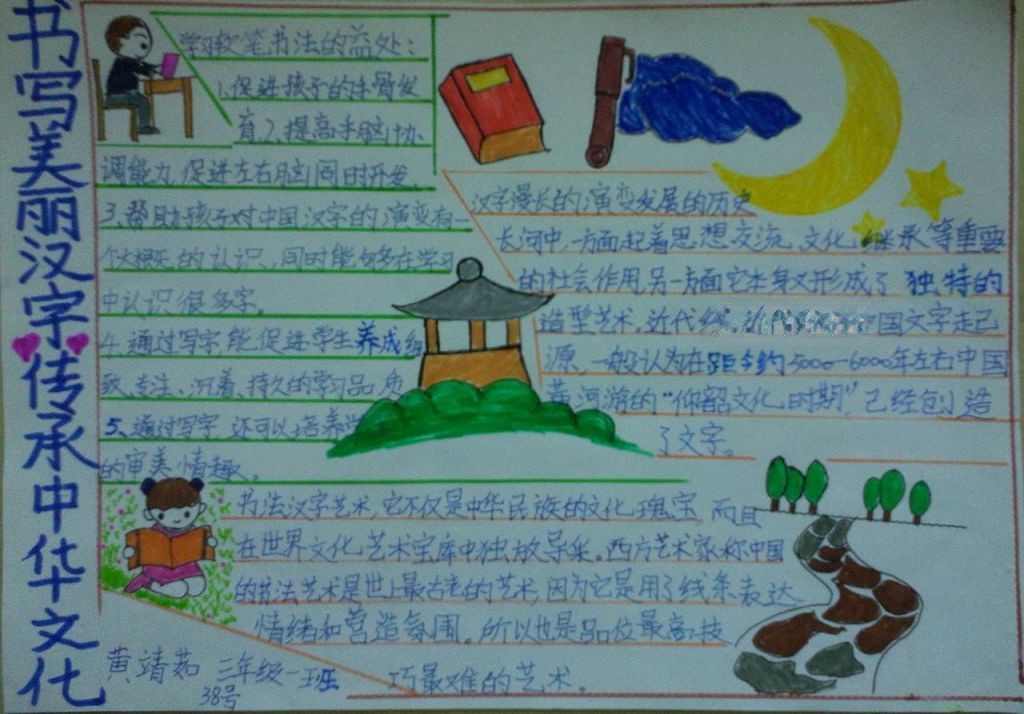 书写美丽汉字传承中华文化
学习软笔书法的益处：
1、促进孩子的手骨发
育2、提高手脑协
调能力，促进左右脑同时开发。
3、帮助孩子对中国汉字的演变有一
个大概的认识，同时能够在学习
中认识很多字。
4、通过写字，能促进学生养成细
致、专注、沉着、持久的学习品质
5、通过写字，还可以培养学
的审美情趣。
汉字漫长的演变发展的历史
长河中，一方面起着思想交流、文化继承等重要
的社会作用，另一方面它本身又形成了独特的
造型艺术。近代
国文字走己
源，一般认为在距今约5000-6000年左右中国
黄河游的“仰韶文化时期”已经创造
了文字。
书法汉字艺术，它不仅是中华民族的文化瑰宝，而且
在世界文化艺术宝库中独放异采。西方艺术家称中国
的书法艺术是世上最古老的艺术，因为它是用了线条表达
情绪和营造氛围。所以也是品位最高技
巧最难的艺术。
黄靖茹 三年级一班
38号